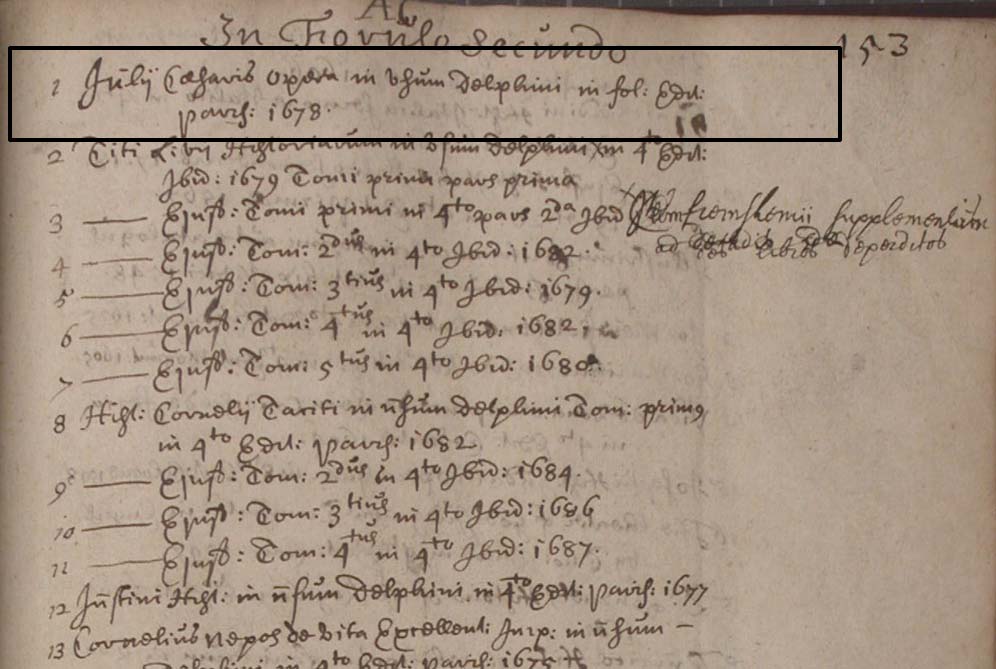 In Forulo Secundo
153
1 Julij Cæsaris Opera in usum Delphini in fol: Edit:
Paris: 1678.
2 Titi Livij Historiarum in Usum Delphini in 4to Edit:
Ibid: 1679 Tomi primi pars prima
3 —— Ejusd: Tomi primi in 4to pars 2da Ibid
supplementum
ad libros deperditos
4 —— Ejusd: Tom: 2dus in 4to Ibid: 1682
5 —— Ejusd: Tom: 3tius in 4to Ibid: 1679.
6 —— Ejusd: Tom: 4tus in 4to Ibid: 1682
7 —— Ejusd: Tom: 5tus in 4to Ibid: 1680.
8 Hist: Cornelij Taciti in usum Delphini Tom: primus
in 4to Edit: Paris: 1682
9 —— Ejusd: Tom: 2dus in 4to Ibid: 1684.
10 —— Ejusd: Tom: 3tius in 4to Ibid: 1686
11 —— Ejusd: Tom: 4tus in 4to Ibid: 1687.
12 Justini Hist: in usum Delphini in 4to Edit: Paris: 1677
13 Cornelius Nepos de Vita Excellent: Imp: in usum —
Delphini in 4to Edit: Paris: 1675